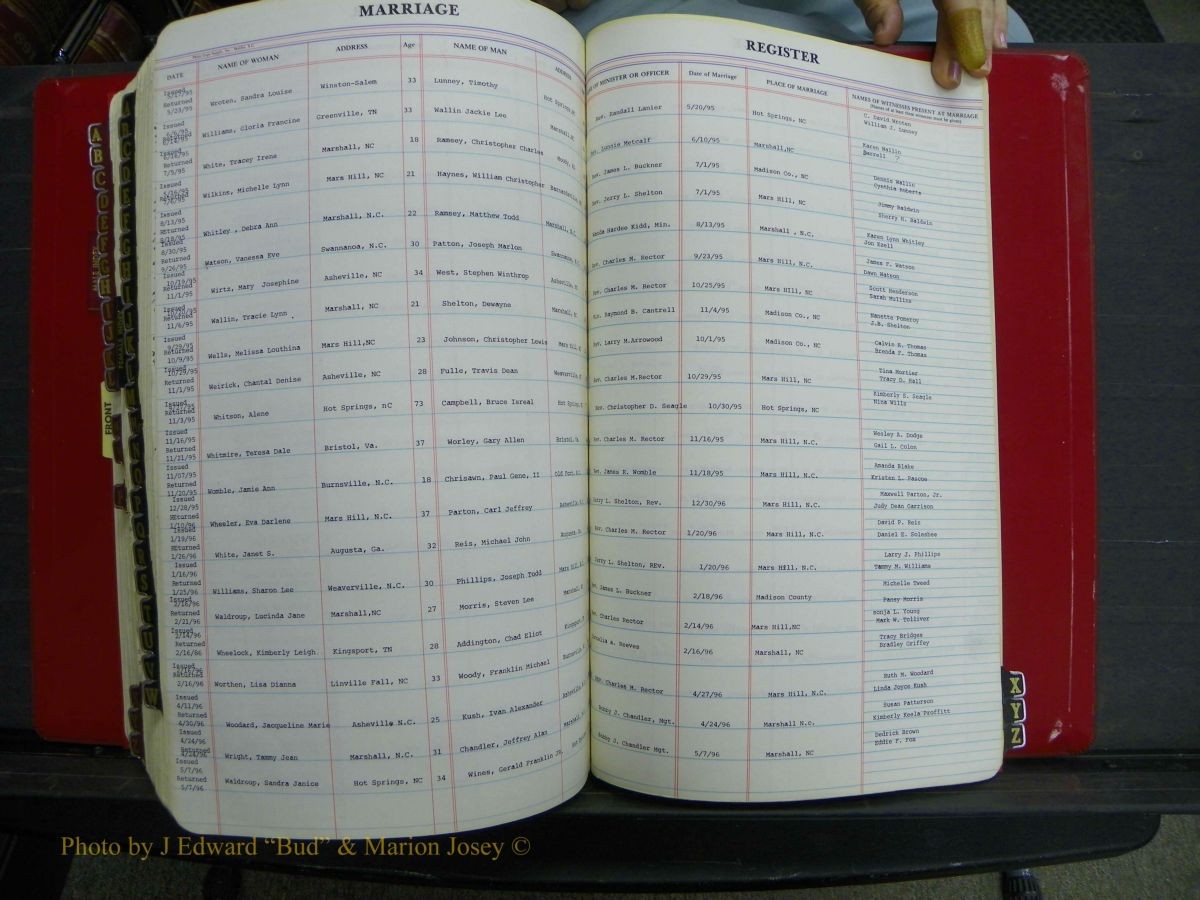 MARRIAGE
DATE NAME OF WOMAN ADDRESS Age NAME OF MAN ADDRESS
Issued
5/17/95
Returned
5/23/95
Wroten, Sandra Louise Winston-Salem 33 Lunney, Timothy Hot Springs
Issued
Williams, Gloria Francine Greenville, TN 33 Wallin Jackie Lee Marshall, NC
Returned
7/5/95
White, Tracey Irene Marshall, NC 18 Ramsey, Christopher Charles
Wilkins, Michelle Lynn Mars Hill, NC 21 Haynes, William Christopher
Issued
8/13/95
Whitley , Debra Ann Marshall, N.C. 22 Ramsey, Matthew Todd Marshall,
Issued
8/30/95
Returned
9/26/95
Watson, Vanessa Eve Swannanoa, N.C. 30 Patton, Joseph Marlon
Issued
10/19/95
Returned
11/1/95
Wirtz, Mary Josephine Asheville, NC 34 West, Stephen Winthrop Asheville,
Issued
Returned
11/6/95
Wallin, Tracie Lynn Marshall, NC 21 Shelton, Dewayne Marshall,
Returned
10/9/95
Wells, Melissa Louthina Mars Hill,NC 23 Johnson, Christopher Lewis Mars Hill
Issued
10/29/95
Returned
11/1/95
Weirick, Chantal Denise Asheville, NC 28 Fulle, Travis Dean Weaverville,
Returned
11/3/95
Whitson, Alene Hot Springs, nC 73 Campbell, Bruce Isreal Hot Springs,
Issued
11/16/95
Returned
11/21/95
Whitmire, Teresa Dale Bristol, Va. 37 Worley, Gary Allen Bristol,
Issued
11/07/95
Returned
11/20/95
Womble, Jamie Ann Burnsville, N.C. 18 Chrisawn, Paul Gene, II Old Fort,
Issued
12/28/95
REturned
1/10/96
Wheeler, Eva Darlene Mars Hill, N.C. 37 Parton, Carl Jeffrey
Issued
1/19/96
REturned
1/26/96
White, Janet S. Augusta, Ga. 32 Reis, Michael John Augusta,
Issued
1/16/96
Returned
1/25/96
Williams, Sharon Lee Weaverville, N.C. 30 Phillips, Joseph Todd Mars Hill,
Issued
2/16/96
Returned
2/21/96
Waldroup, Lucinda Jane Marshall,NC 27 Morris, Steven Lee Marshall,
Issued
2/14/96
Returned
2/16/86
Wheelock, Kimberly Leigh Kingsport, TN 28 Addington, Chad Eliot Kingsport,
Issued
Returned
2/16/96
Worthen, Lisa Dianna Linville Fall, NC 33 Woody, Franklin Michael
Issued
4/11/96
Returned
4/30/96
Woodard, Jacqueline Marie Asheville N.C. 25 Kush, Ivan Alexander Asheville,
Issued
4/24/96
Returned
Wright, Tammy Jean Marshall, N.C. 31 Chandler, Jeffrey Alan Marshall,
Issued
5/7/96
Returned
5/7/96
Waldroup, Sandra Janice Hot Springs, NC 34 Wines, Gerald Franklin JR.
REGISTER
OF MINISTER OR OFFICER Date of Marriage PLACE OF MARRIAGE NAMES OF WITNESSES PRESENT AT MARRIAGE
Rev. Randall Lanier 5/20/95 Hot Springs, NC C. David Wroten
William J. Lunney
Metcalf 6/10/95 Marshall,NC Karen Wallin
Darrell ?
Rev. James L. Buckner 7/1/95 Madison Co., NC Dennis Wallin
Cynthia Roberts
Rev. Jerry L. Shelton 7/1/95 Mars Hill, NC Jimmy Baldwin
Sherry H. Baldwin
Hardee Kidd, Min. 8/13/95 Marshall , N.C. Karen Lynn Whitley
Jon Ezell
Rev. Charles M. Rector 9/23/95 Mars Hill, N.C. James F. Watson
Dawn Watson
Rev. Charles M. Rector 10/25/95 Mars Hill, NC Scott Henderson
Sarah Mullins
Raymond B. Cantrell 11/4/95 Madison Co., NC Nanette Pomeroy
J.B. Shelton
Rev. Larry M.Arrowood 10/1/95 Madison Co., NC Calvin R. Thomas
Brenda F. Thomas
Rev. Charles M.Rector 10/29/95 Mars Hill, NC Tina Mortier
Tracy D. Hall
Rev. Christopher D. Seagle 10/30/95 Hot Springs, NC Kimberly S. Seagle
Nina Wills
Rev. Charles M. Rector 11/16/95 Mars Hill, N.C. Wesley A. Dodge
Gail L. Colon
Rev. James E. Womble 11/18/95 Mars Hill, N.C. Amanda Blake
Kristen L. Pascoe
Jerry L. Shelton, Rev. 12/30/96 Mars Hill, N.C. Maxwell Parton, Jr.
Judy Dean Garrison
Rev. Charles M. Rector 1/20/96 Mars Hill, N.C. David P. Reis
Daniel E. Solesbee
Jerry L. Shelton, REv. 1/20/96 Mars Hill, N.C. Larry J. Phillips
Tammy M. Williams
Rev. James L. Buckner 2/18/96 Madison County Michelle Tweed
Pansy Morris
Rev. Charles Rector 2/14/96 Mars Hill,NC Sonja L. Young
Mark W. Tolliver
A. Reeves 2/16/96 Marshall, NC Tracy Bridges
Bradley Griffey
Rev. Charles M. Rector 4/27/96 Mars Hill, N.C. Ruth M. Woodard
Linda Joyce Kush
Bobby J. Chandler, Mgt. 4/24/96 Marshall N.c. Susan Patterson
Kimberly Keela Proffitt
Bobby J. Chandler Mgt. 5/7/96 Marshall, NC Dedrick Brown
Eddie F. Fox
A
B
C
D
E
F
G
H
FRONT
S
W
X
Y
Z
Photo by J Edward “Bud” & Marion Josey ©